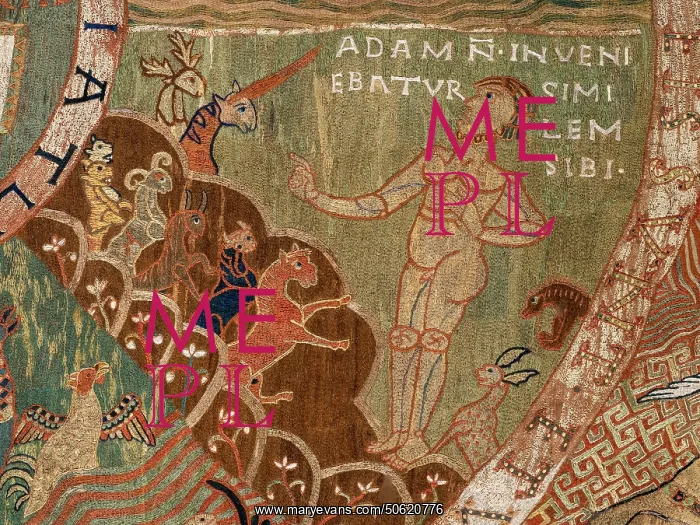 ADAM Ñ·INVENI
EBATVR SIMI
LEM
SIBI·
IATI
ME
PL
ME
PL
www.maryevans.com/50620776